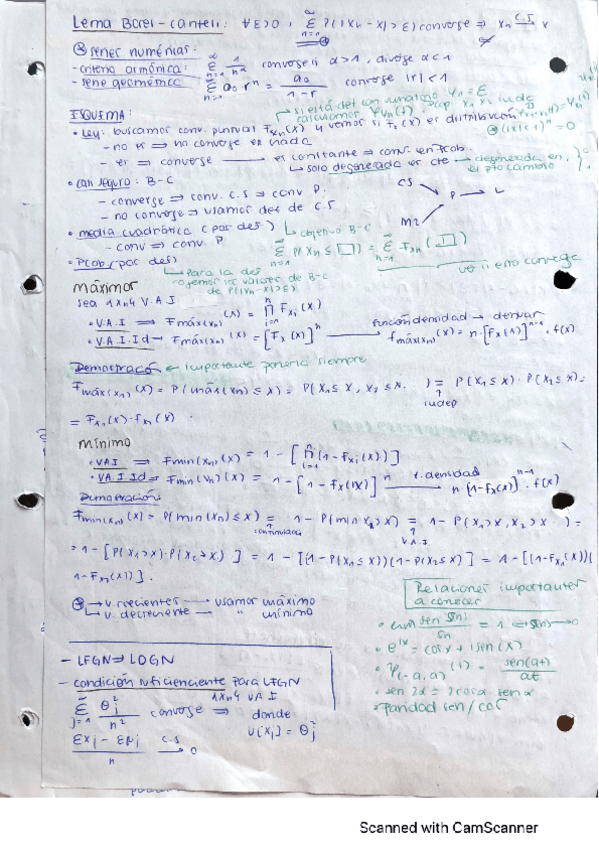 Lema Borel-Canteli: ∀ε>0, ∑_{n=1}^∞ P(|Xn-X|>ε) converse ⇒ Xn →^{c.s} X
⊛ series numéricas:
-criterio armónico: ∑_{n=1}^∞ 1/n^α converse si α>1, diverge α<1
- serie geométrica: ∑_{n=1}^∞ a₀·rⁿ = a₀/(1-r) converse |r|<1
ESQUEMA:
• Ley: buscamos conv. puntual F_{Xn}(x) y vemos si F_X(x) es distribución
- no es ⇒ no converse en nada
- es ⇒ converse → es constante ⇒ conv. en Prob.
↳ solo degenerada es cte → degenerada en el pto cambio
• casi seguro: B-C
- converse ⇒ conv c.s ⇒ conv P.
- no converse ⇒ usamos def de c.s
CS → P → L
M2
• media cuadrática (por def.) ↳ objetivo B-C
- conv ⇒ conv. P
∑_{n=1}^∞ P(Xn ≤ □) = ∑_{n=1}^∞ F_{Xn}(□)
ver si esto converge
• Prob (por def)
↳ Para la def cogemos los valores de B-C de P(|Xn-X|>ε)
máximor
sea {Xn} V.A.I
• V.A.I ⇒ Fmáx(xn)(x) = ∏_{i=1}^n F_{Xi}(x)
• V.A.I.Id → Fmáx(xn)(x) = [F_X(x)]ⁿ → función densidad → derivar
fmáx(xn)(x) = n·[F_X(x)]^{n-1}·f(x)
Demostración ← importante ponerla siempre
Fmáx(xn)(x) = P(máx(xn) ≤ x) = P(X₁≤x, X₂≤x. ) = P(X₁≤x)·P(X₂≤x)=
indep
= F_{X₁}(x)·F_{X₂}(x)
mínimo
• VAI ⇒ Fmin(xn)(x) = 1 - [∏_{i=1}^n (1-F_{Xi}(x))]
• VA.I.Id → Fmin(xn)(x) = 1 - [1-F_X(x)]ⁿ → f. densidad n[1-F_X(x)]^{n-1}·f(x)
Demostración:
Fmin(xn)(x) = P(min(xn) ≤ x) = 1 - P(min Xn > x) = 1 - P(X₁>x, X₂>x ) =
V.A.I.
= 1 - [P(X₁>x)·P(X₂>x) ] = 1 - [(1-P(X₁≤x))(1-P(X₂≤x)] = 1 - [(1-F_{X₁}(x))(
1-F_{X₂}(x))].
⊛ → v. crecientes → usamos máximo
↳ v. decreciente → " mínimo
Relaciones importantes a conocer
• e^{ix} = cosx + isen(x)
• φ_{(-a,a)}(t) = sen(at)/at
• sen 2α = 2cosα senα
• Paridad sen/cos
- LFGN ⇒ LDGN
- condición suficiente para LFGN
{Xn} VAI
∑_{j=1}^∞ σ_j²/n² converse ⇒ donde V[Xj] = σ_j²
(∑Xj - ∑μj)/n →^{c.s} 0
Scanned with CamScanner